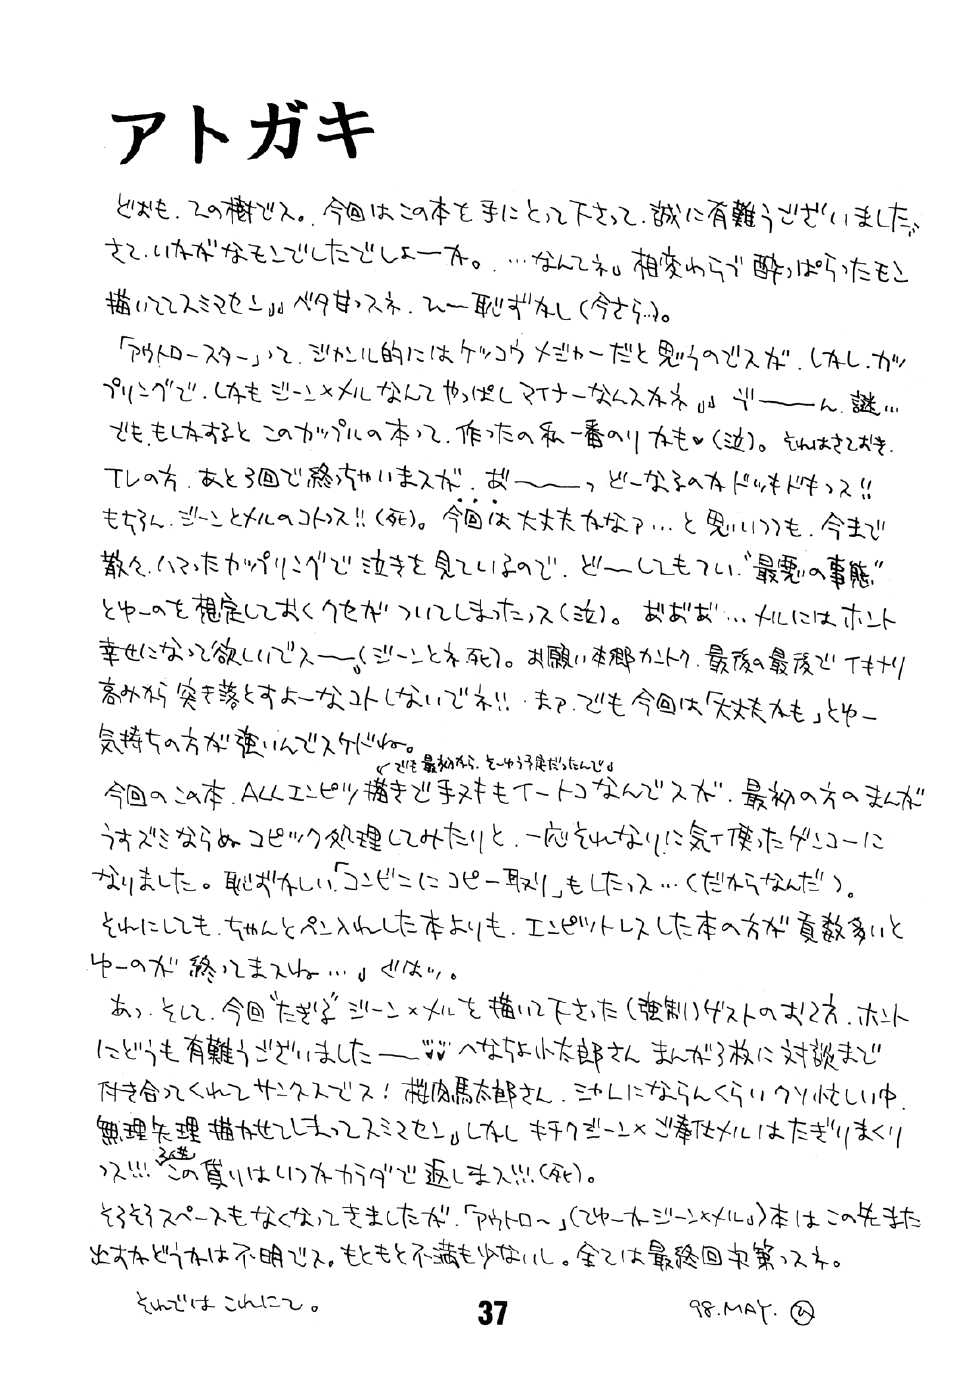 アトガキ
どおも、ひの樹でス。今回はこの本を手にとって下さって、誠に有難うございました。
さて、いかがなモンでしたでしょーか。…なんてネ。相変わらず酔っぱらったモン
描いててスミマセン。ベタ甘っスネ、ひー恥ずかし(今さら…)。
「アウトロースター」って、ジャンル的にはケッコウメジャーだと思うのでスが、しかし、カッ
プリングで、しかもジーン×メルなんてやっぱしマイナーなんスかネ。 ゔーーん、謎…
でも、もしかすると このカップルの本って、作ったの私一番のりかも♥(泣)。それはさておき、
TVの方、あと3回で終っちゃいまスが、あ゛ーーーっ どーなるのかドッキドキっス!!
もちろん、ジーンとメルのコトっス!!(死)。今回は大丈夫かなァ…と思いつつも、今まで
散々、ハマったカップリングで泣きを見ているので、どーしてもつい“最悪の事態”
とゆーのを想定しておくクセがついてしまったっス(泣)。あ゛あ゛あ゛…メルにはホント
幸せになって欲しいでスー(ジーンとネ、死)。お願い本郷カントク、最後の最後でイキナリ
高みから突き落とすよーなコトしないでネ!! まァ、でも今回は「大丈夫かも」とゆー
気持ちの方が強いんでスケドね。
でも最初から、そーゆう予定だったんで。
今回のこの本、ALLエンピツ描きで手ヌキもイートコなんでスが、最初の方のまんが
うすズミならぬコピック処理してみたりと、一応それなりに気イ使ったゲンコーに
なりました。恥ずかしい「コンビニにコピー取り」もしたっス…(だからなんだ)。
それにしても、ちゃんとペン入れした本よりも、エンピツトレスした本の方が頁数多いと
ゆーのが終ってまスね…。ぐはッ。
あっ、そして、今回“たぎる”ジーン×メルを描いて下さった(強制)ゲストのお2方、ホント
にどうも有難うございましたー へなちょ小太郎さん まんが3枚に対談まで
付き合ってくれてサンクスでス!桜肉馬太郎さん、シャレにならんくらいクソ忙しい中、
無理矢理描かせてしまってスミマセン。しかしキチクジーン×ご奉仕メルはたぎりまくり
っス!!! この貸りはいつかカラダで返しまス!!!(死)。
そろそろスペースもなくなってきましたが、「アウトロ〜」(てゆーかジーン×メル。)本はこの先また
出すかどうかは不明でス。もともと不満も少ないし。全ては最終回次第っスネ。
それでは これにて。
98.MAY. ひ
37